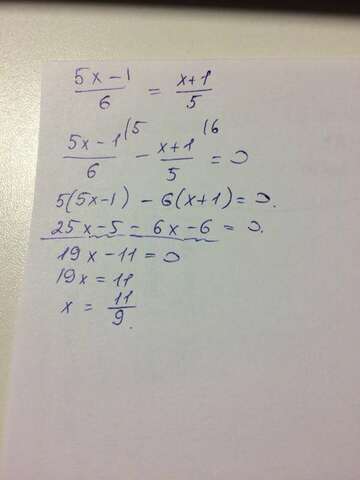 5x-1/6 = x+1/5
5x-1/6 (5 - x+1/5 (6 = 0
5(5x-1) - 6(x+1) = 0.
25x-5 - 6x-6 = 0.
19x-11 = 0
19x = 11
x = 11/9.